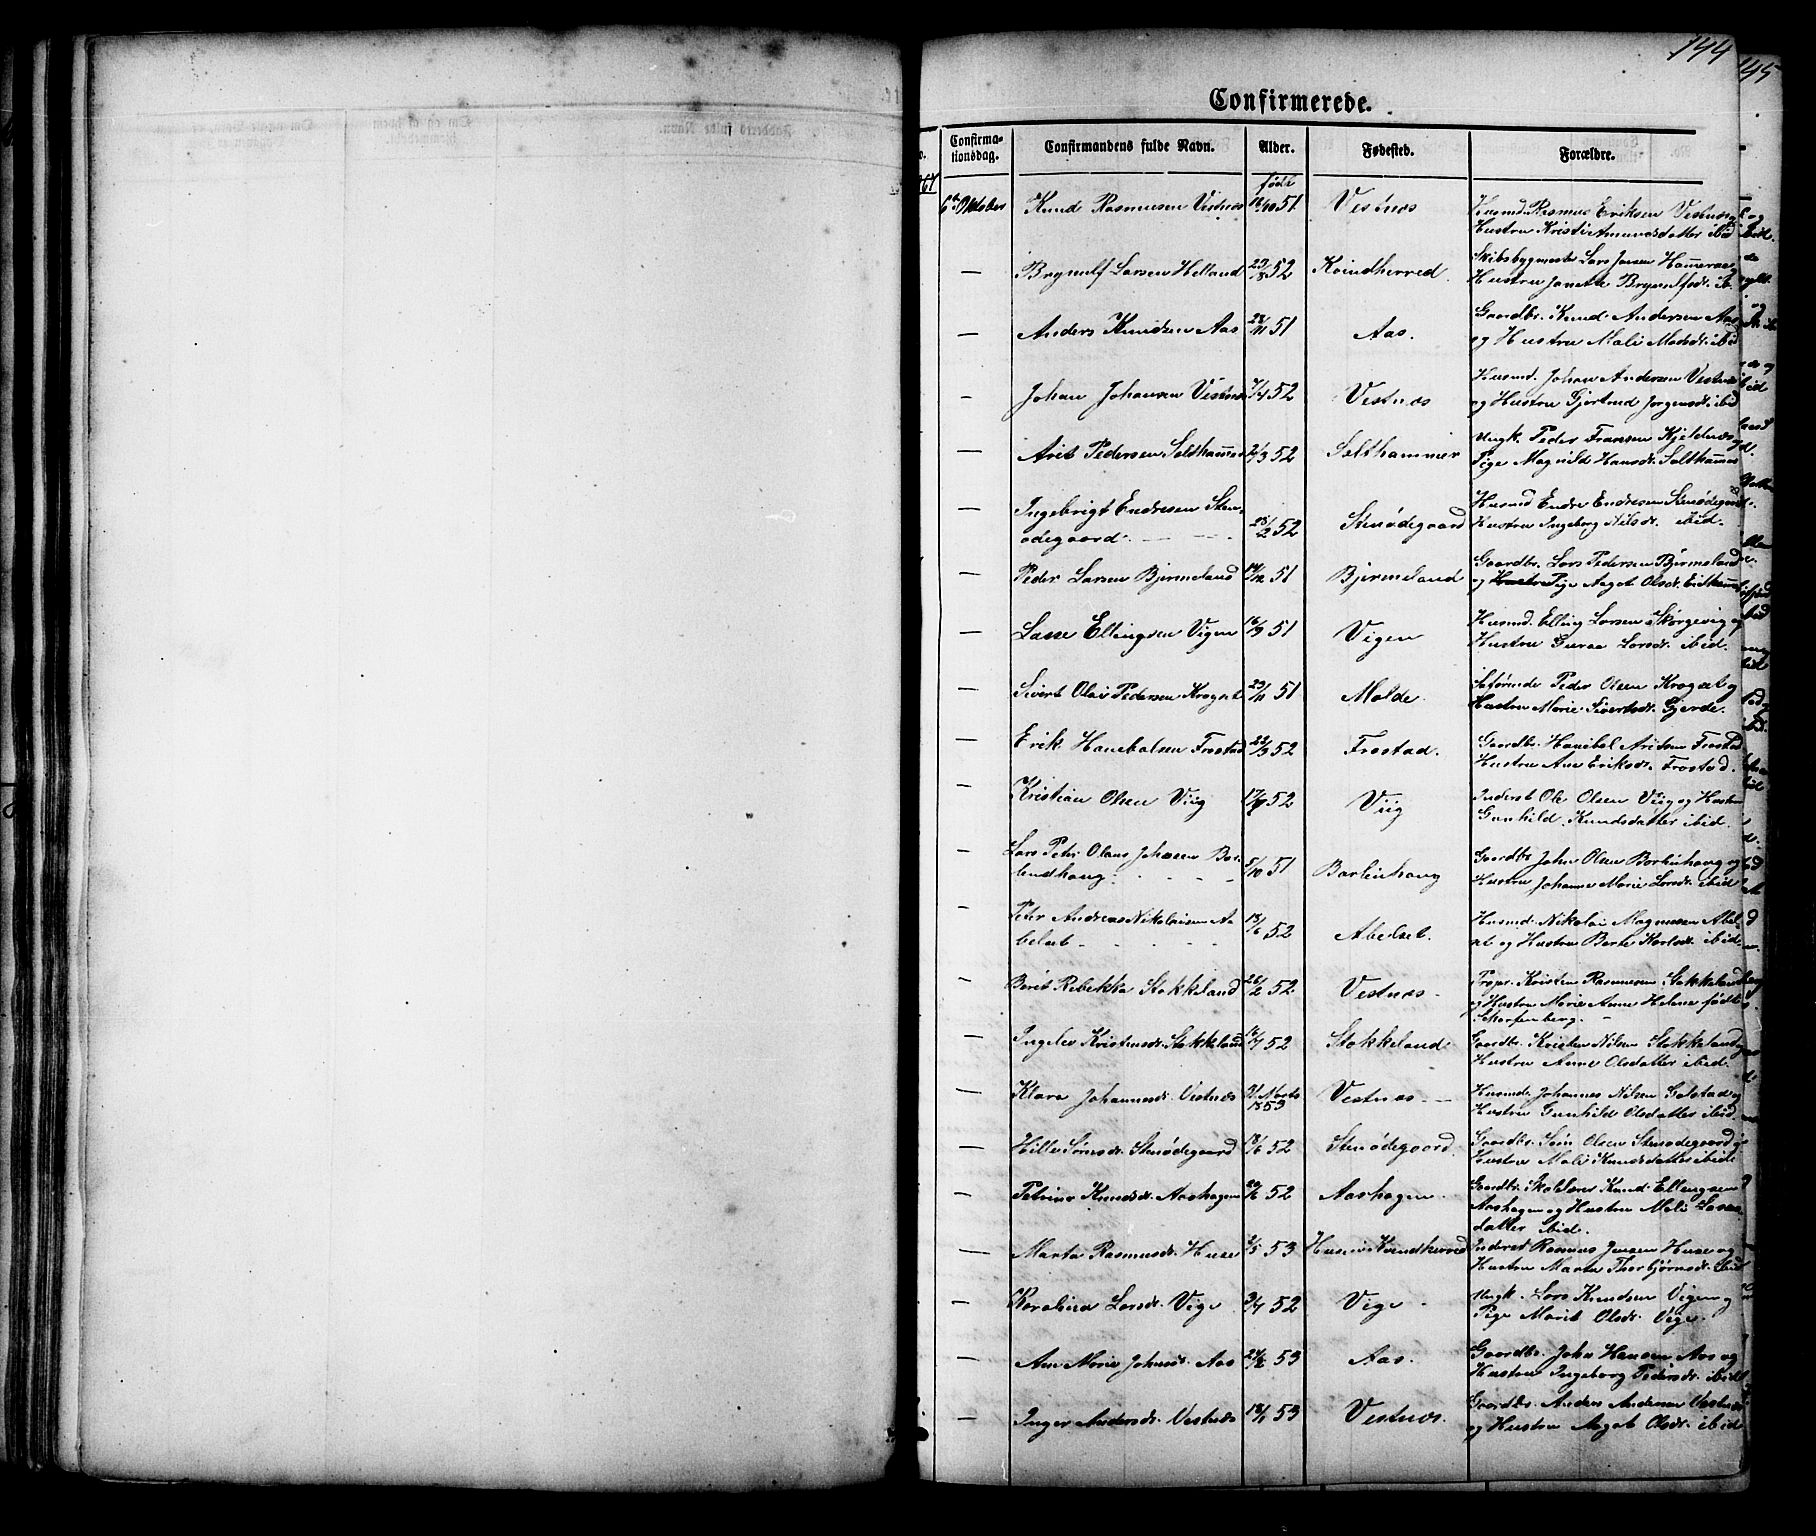 144
145
Confirmerede.
Confirma-
tionsdag.
Confirmandens fulde Navn.
Alder.
Fødested.
Forældre.
født
6te Oktober Knud Rasmusen Vestnæs 16/10 51 Vestnæs Husmd. Rasmus Eriksen Vestnæs
Hustru Kristi Amundsdatter ibid
— Brynulf Larsen Helland 29/8 52 Kvindherred Skibsbygmester Lars Jensen
Hustru Janetta Brynulfsdr.
— Anders Knudsen Aas 28/11 51 Aas. Gaardbr. Knud Andersen Aas
og Hustru Mali Madsdr. ibid
— Johan Johansen Vestnæs 7/4 52 Vestnæs Husmd. Johan Andersen Vestnæs
og Hustru Gjertrud Jørgensdr. ibid
— Arit Pedersen Salthammer 2/3 52 Salthammer Ungk. Peder Fransen Kjeldnes
Pige Magnild Hansdr. Salthammer
— Ingebrigt Endresen Sten-
ødegaard 28/2 52 Stenødegaard Husmd Endre Endresen Stenødegaard
Hustru Ingeborg Nilsdr. ibid.
— Peder Larsen Bjermeland 14/12 51 Bjermeland Gaardbr. Lars Pedersen Bjermeland
og Hustru Pige Aagot Olsdr.
— Lasse Ellingsen Vigen 16/9 51 Vigen Husmd. Elling Larsen Skorgevig og
Hustru Guraa Larsdr. ibid.
— Sivert Olai Pedersen Krogset 23/11 51 Molde Peder Olsen Krogset og
Hustru Marie Sivertsdr. Gjerde.
— Erik Hanebalsen Frostad 22/3 52 Frostad. Gaardbr. Hanibal Aritsen Frostad
Hustru Ane Eriksdr. Frostad.
— Kristian Olsen Viig 17/4 52 Viig Inderst Ole Olsen Viig og Hustru
Gunhild Knudsdatter ibid.
— Lars Peter Olaus Johnsen Bar-
linhaug 5/10 51 Barlinhaug Gaardbr John Olsen Barlinhaug og
Hustru Johanne Marie Larsdr. ibid
— Peter Andreas Nikolaisen A-
belset 13/6 52 Abelset. Husmd. Nikolai Magnusen Abel-
set og Hustru Berte Karlsdr. ibid.
— Berit Rebekka Stokkeland 26/2 52 Vestnæs Propr. Kristen Rasmusen Stokkeland
og Hustru Marie Anne Helene født
Scharfenberg.
— Ingelev Kristensdr. Stokkeland 16/7 52 Stokkeland Gaardbr. Kristen Nilsen Stokkeland
Hustru Anne Olsdatter ibid.
— Klara Johannesdr. Vestnæs 31 Marts
1853 Vestnæs Husmd. Johannes Nilsen Galstad og
Hustru Gunhild Olsdatter ibid.
— Hille Sørensdr. Stenødegaard 18/6 52 Stenødegaard. Gaardbr. Søren Olsen Stenødegaard og
Hustru Mali Knudsdatter ibid.
— Petrine Knudsdr. Aashagen 20/6 52 Aashagen Gaardbr. Skolelærer Knud Ellingsen
Aashagen og Hustru Mali Lasse-
datter ibid.
— Marta Rasmusdr. Huse 3/5 53 Huse i Kvindherred Inderst Rasmus Jensen Huse og
Hustru Marta Thorbjørnsdr. ibid
— Karolina Larsdr. Vige 3/4 52 Vige Ungk. Lars Knudsen Vigen og
Pige Marit Olsdr. Vige.
— Ane Marie Johnsdr. Aas 24/2 53 Aas. Gaardbr. John Hansen Aas og
Hustru Ingeborg Pedersdr. ibid
— Inger Andersdr. Vestnæs 18/1 53 Vestnæs. Gaardbr. Anders Andersen Vestnæs
og Hustru Aagot Olsdr. ibid